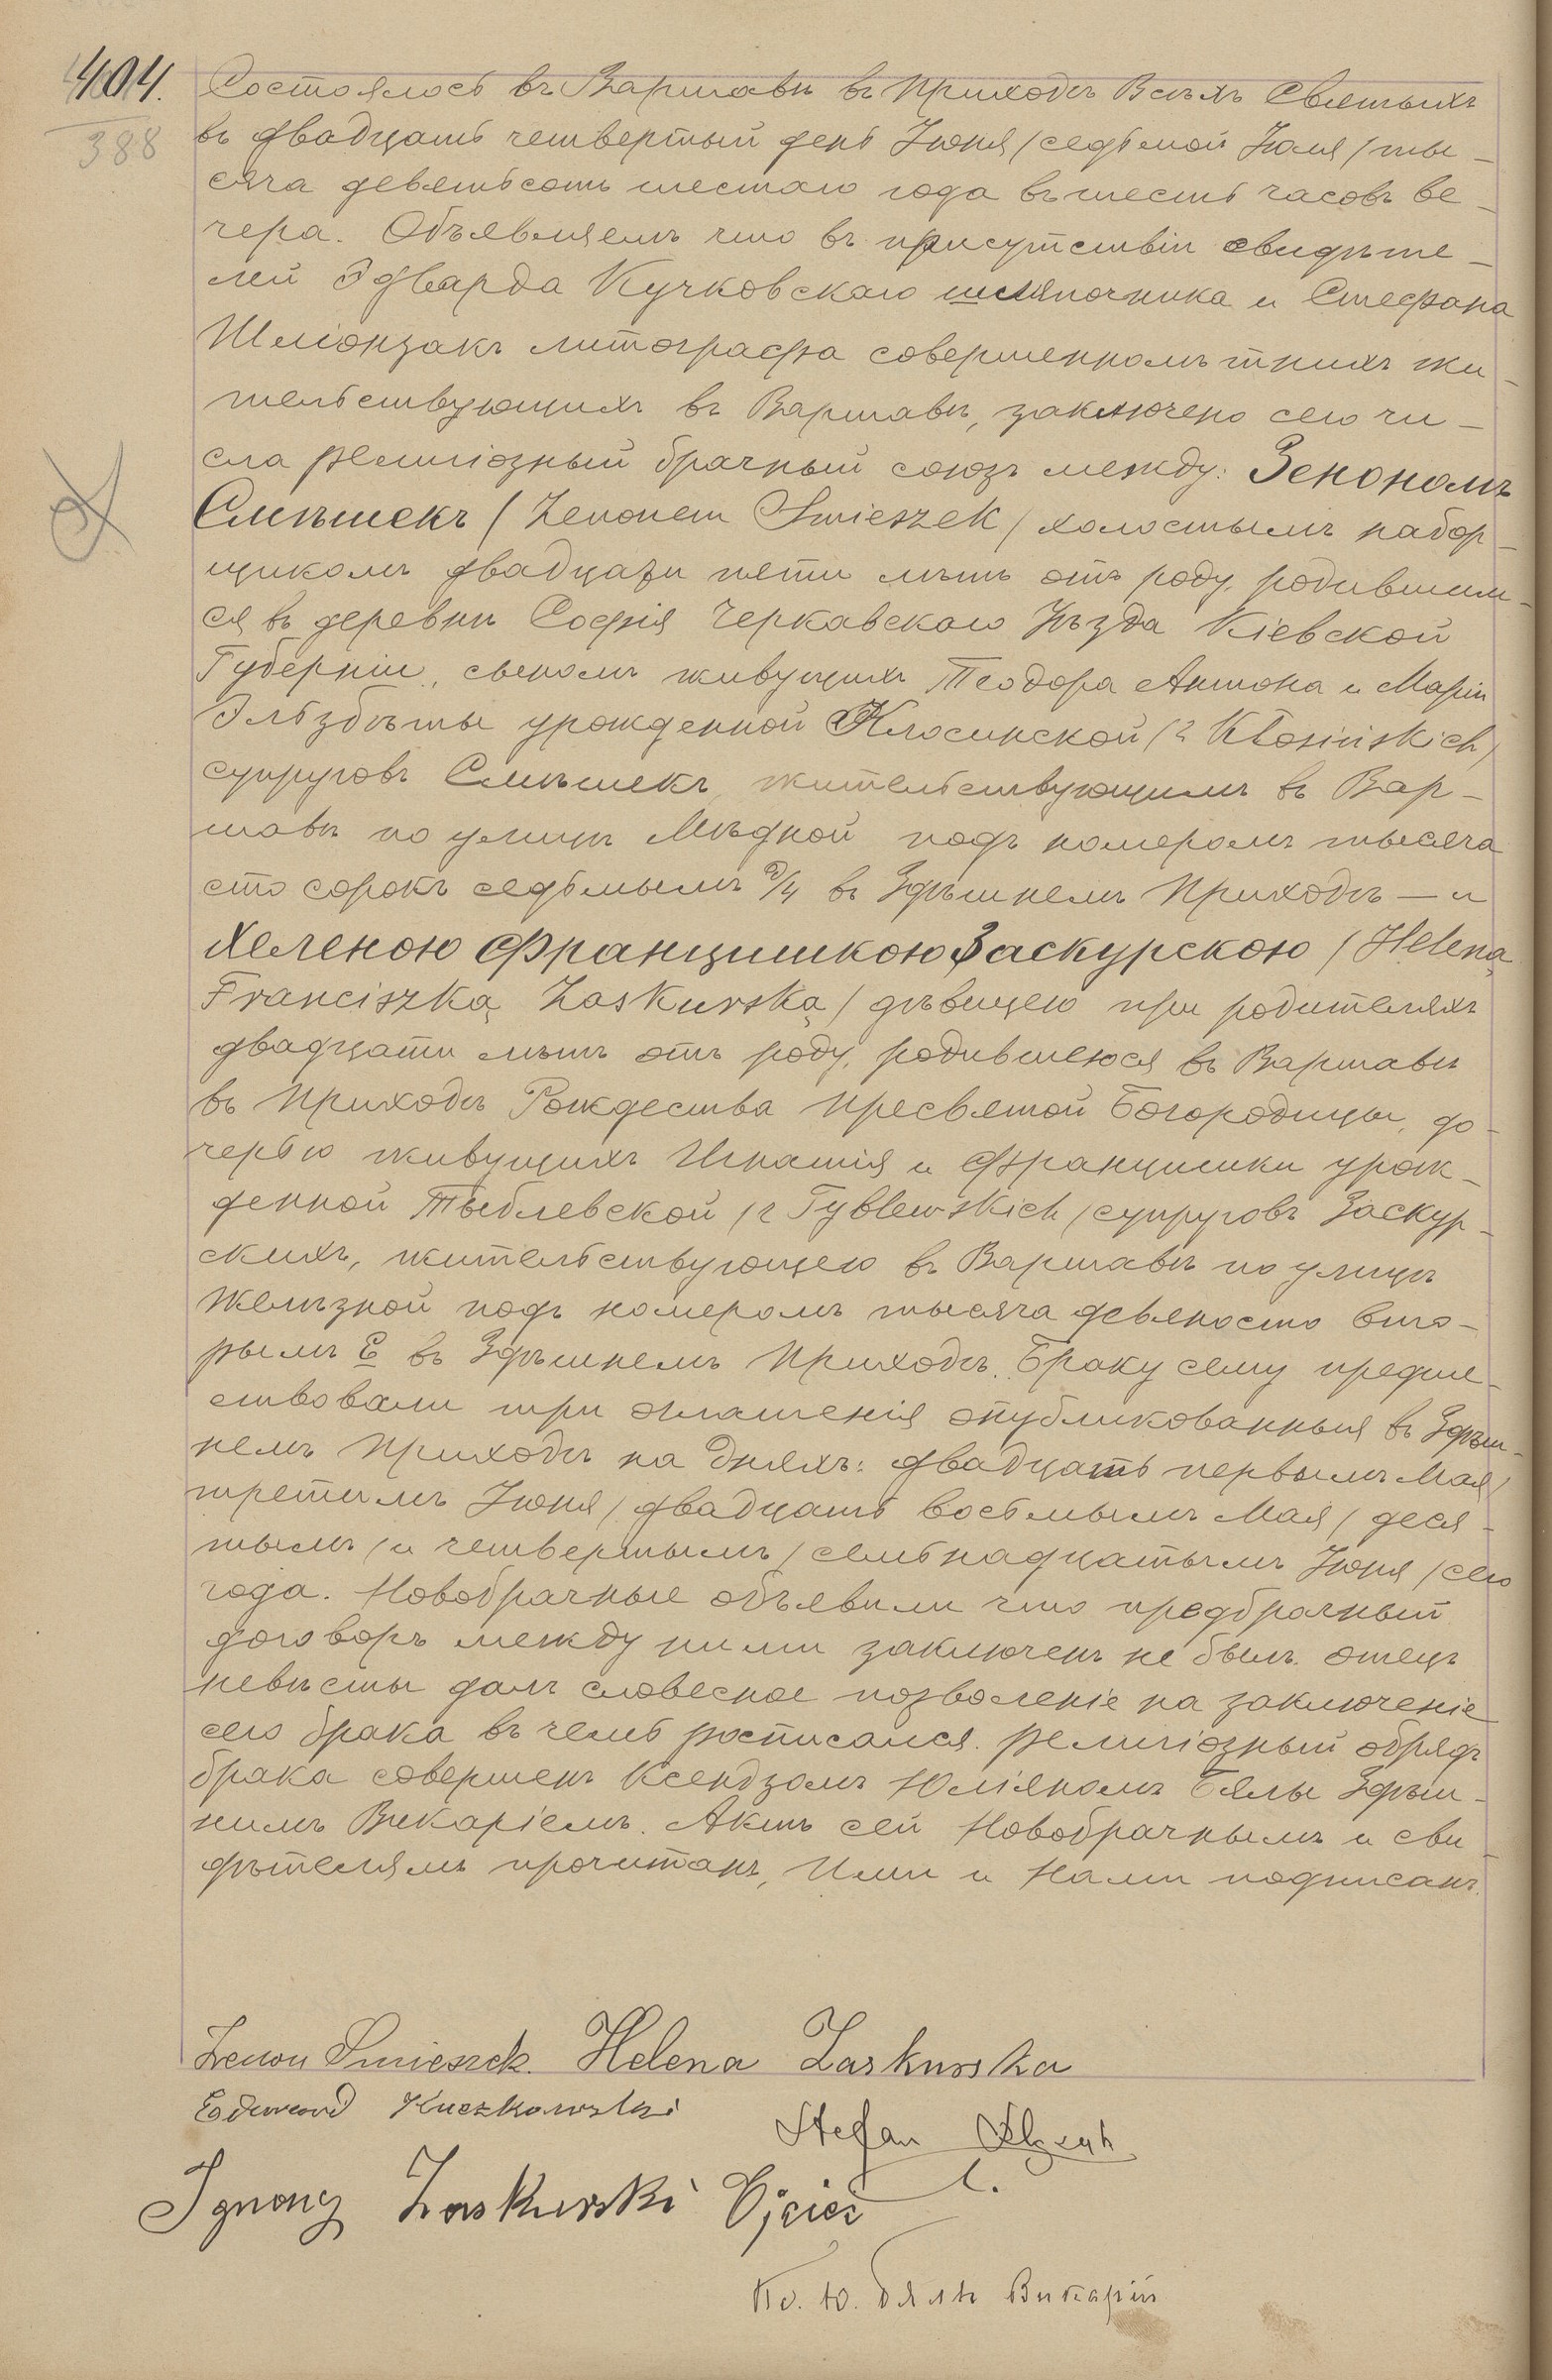 404.
388
Состоялось въ Варшавѣ въ Приходѣ Всѣхъ Святыхъ
въ двадцать четвертый день Іюня /седьмой Іюля/ ты-
сяча девятьсотъ шестаго года въ шесть часовъ ве-
чера. Объявляемъ что въ присутствіи свидѣте-
лей Эдварда Кучковскаго шляпочника и Стефана
Шліонзакъ литографа совершеннолѣтнихъ жи-
тельствующихъ въ Варшавѣ, заключено сего чи-
сла религіозный брачный союзъ между: Зенономъ
Смѣшекъ /Zenonem Smieszek/ холостымъ набор-
щикомъ двадцати пяти лѣтъ отъ роду, родившим-
ся въ деревнѣ Софія Черкавскаго Уѣзда Кіевской
Губерніи, сыномъ живущихъ Теодора Антона и Маріи
Эльзбѣты урожденной Клосинской /z Kłosińskich/
супруговъ Смѣшекъ, жительствующимъ въ Вар-
шавѣ по улицѣ Мѣдной подъ номеромъ тысяча
сто сорокъ седьмымъ D/4 въ Здѣшнемъ Приходѣ — и
Хеленою Францишкою Заскурскою /Heleną
Franciszką Zaskurską/ дѣвицею при родителяхъ
двадцати лѣтъ отъ роду, родившеюся въ Варшавѣ
въ Приходѣ Рождества Пресвятой Богородицы, до-
черью живущихъ Игнатія и Францишки урож-
денной Тыблевской /z Tyblewskich/ супруговъ Заскур-
скихъ, жительствующею въ Варшавѣ по улицѣ
Желѣзной подъ номеромъ тысяча девяносто вто-
рымъ Е въ Здѣшнемъ Приходѣ. Браку сему предше-
ствовали три оглашенія опубликованныя въ Здѣш-
немъ Приходѣ на дняхъ: двадцать первымъ Мая/
третимъ Іюня/, двадцать восьмымъ Мая /деся-
тымъ/ и четвертымъ /семьнадцатымъ Іюня/ сего
года. Новобрачные объявили что предбрачный
договоръ между ними заключенъ не былъ. Отецъ
невѣсты далъ словесное позволеніе на заключеніе
сего брака въ чемъ росписался. Религіозный обрядъ
брака совершенъ Ксендзомъ Юліяномъ Бялы Здѣш-
нимъ Викаріемъ. Актъ сей Новобрачнымъ и сви-
дѣтелямъ прочитанъ, Ими и Нами подписанъ.
Zenon Smieszek. Helena Zaskurska
Edward Kuczkowski
Stefan
Ignacy Zaskurski Ojciec
Кс. Ю. Бялы Викарій